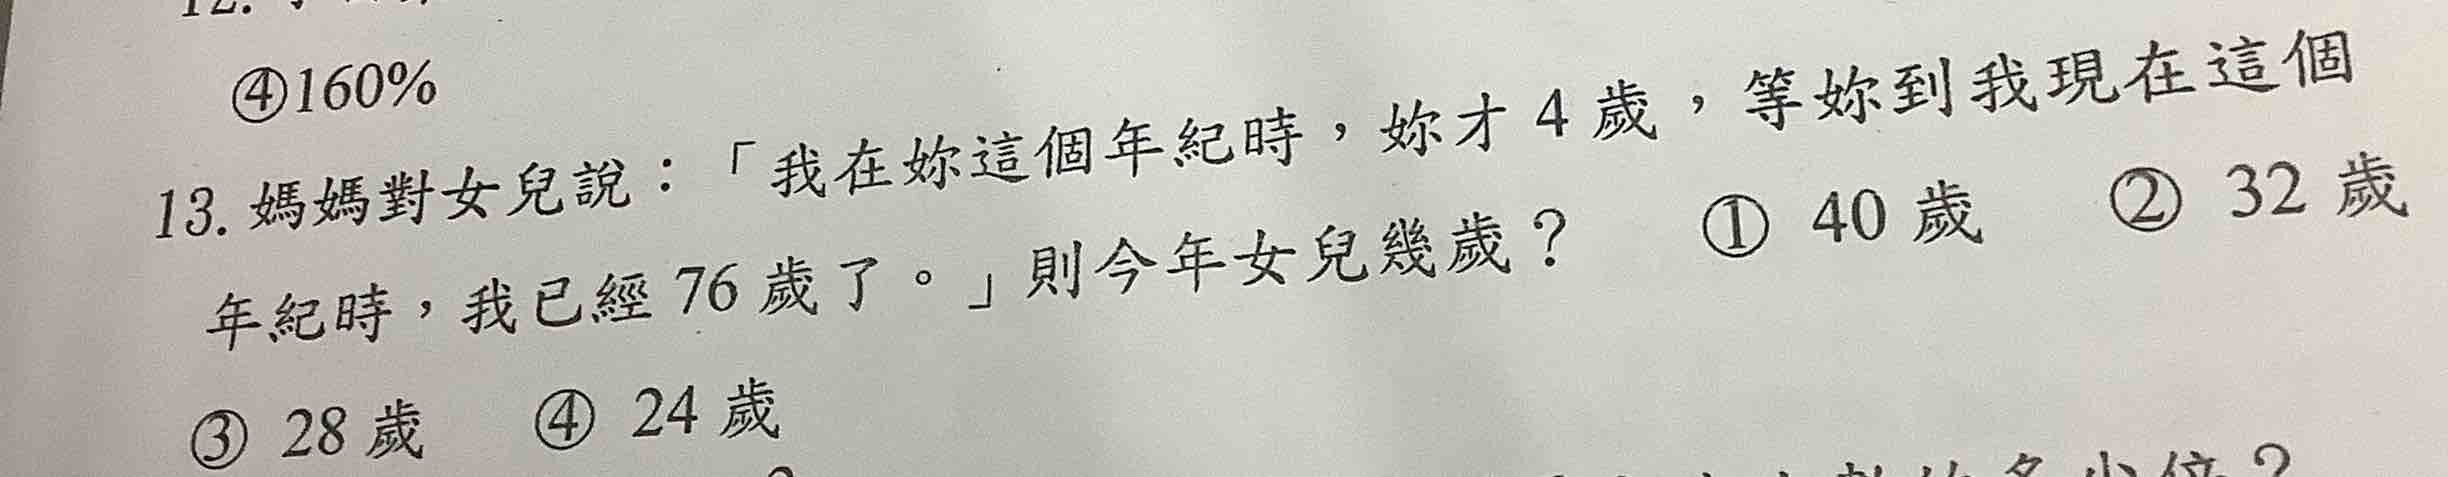 ④160%
13. 媽媽對女兒說：「我在妳這個年紀時，妳才 4 歲，等妳到我現在這個
年紀時，我已經 76 歲了。」則今年女兒幾歲？ ① 40 歲 ② 32 歲
③ 28 歲 ④ 24 歲